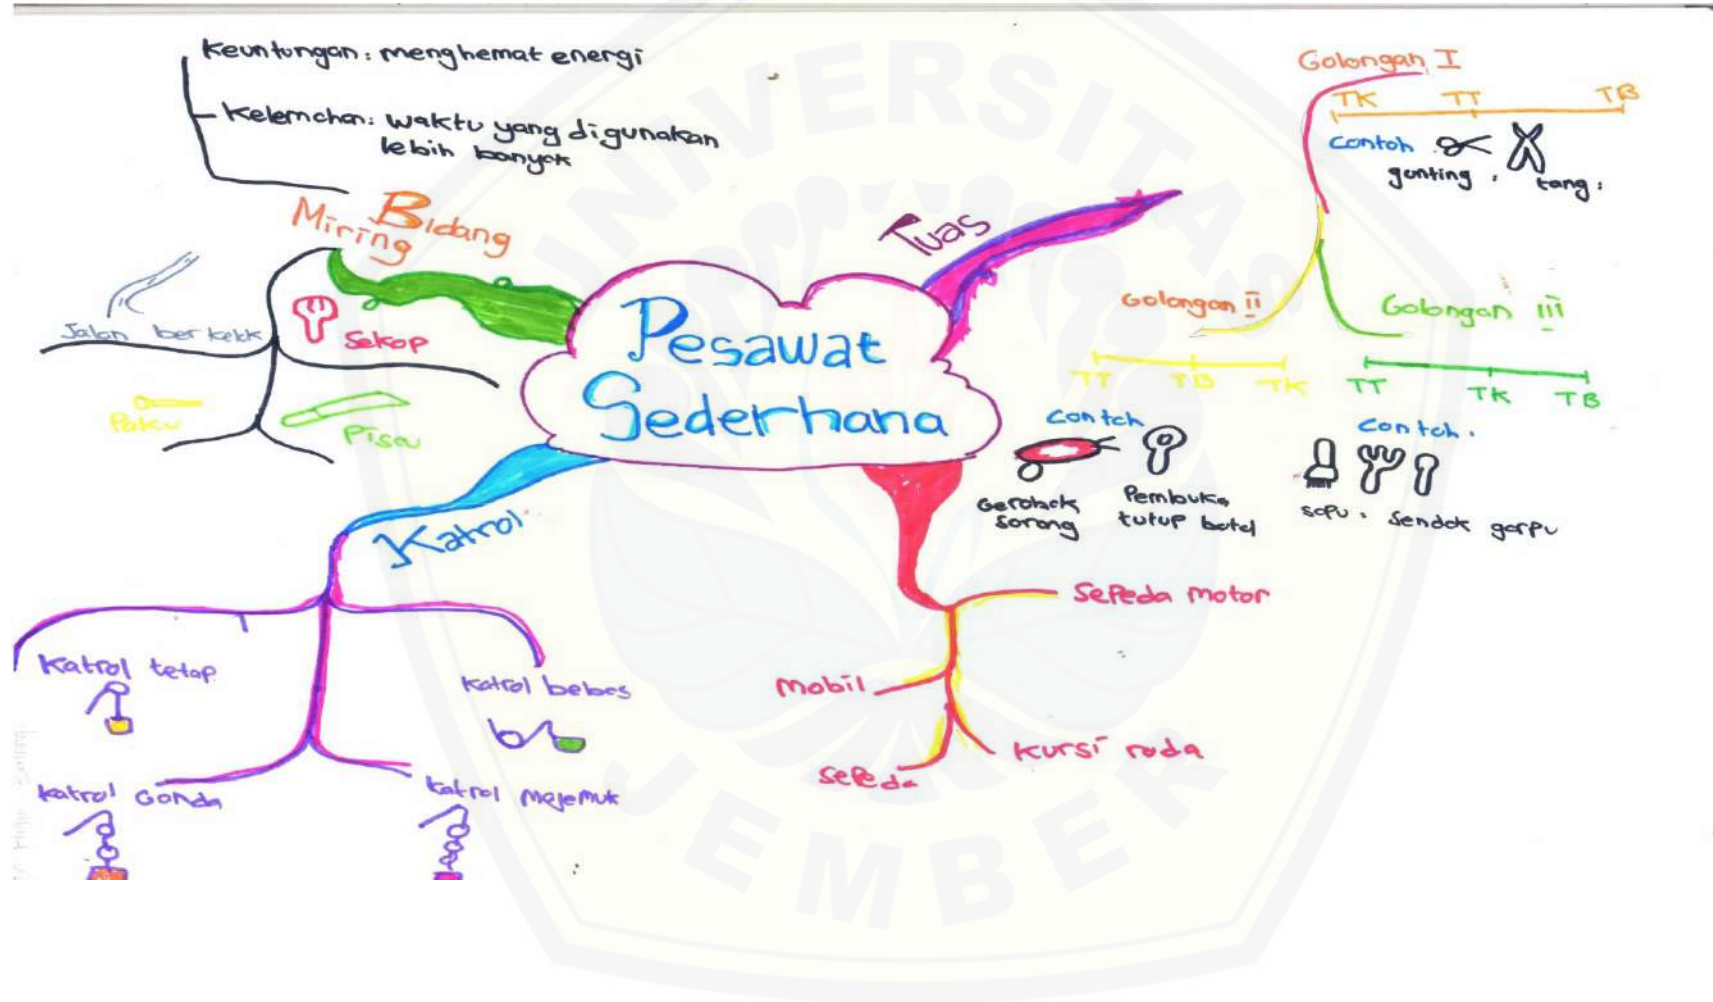 Keuntungan: menghemat energi
Kelemahan: waktu yang digunakan
lebih banyak
Bidang
Miring
Jalan berkelok
Sekop
Paku
Pisau
Pesawat
Sederhana
Tuas
Golongan I
TK TT TB
Contoh
gunting, tang,
Golongan II
TT TB TK
Contoh
Gerobak
sorong
Pembuka
tutup botol
Golongan III
TT TK TB
Contoh.
sapu, sendok garpu
Katrol
Katrol tetap
Katrol bebas
Katrol Ganda
Katrol Majemuk
Sepeda motor
Mobil
Kursi roda
Sepeda
UNIVERSITAS
JEMBER